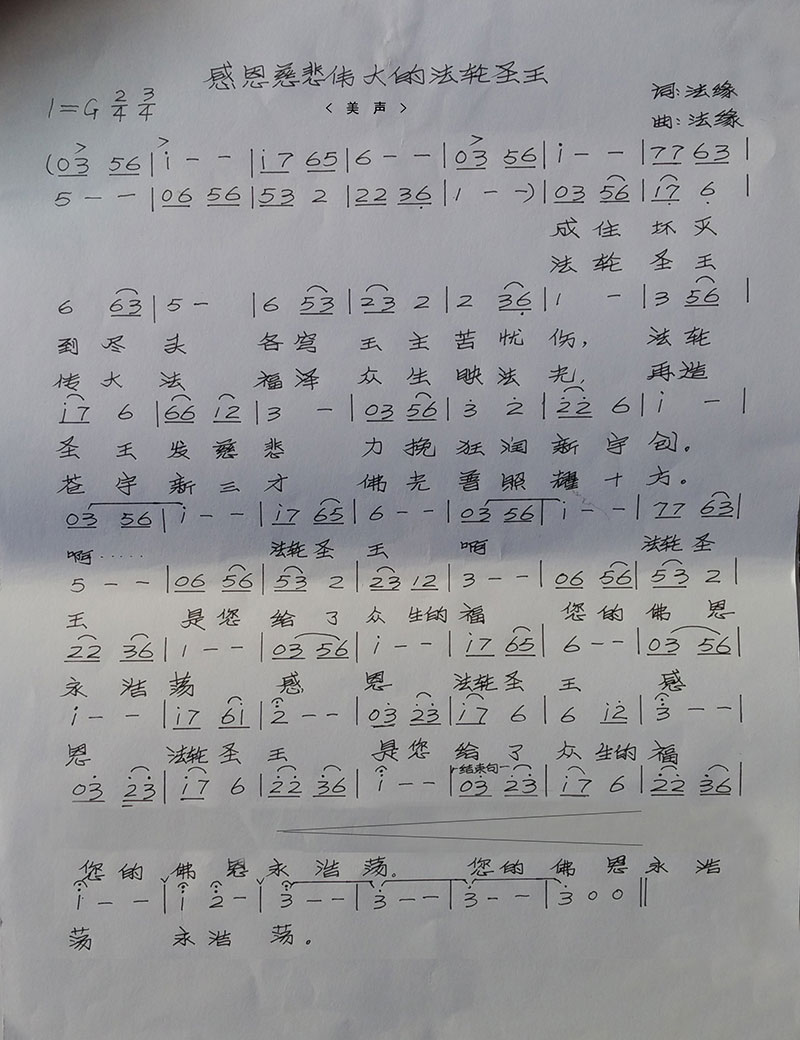 感恩慈悲伟大的法轮圣王
1=G 2/4 3/4
〈美声〉
词:法缘
曲:法缘
(03 56 | i - - | i7 65 | 6 - - | 03 56 | i - - | 77 63 |
5 - - | 06 56 | 53 2 | 22 36 | 1 - -) | 03 56 | i7 6 |
成住坏灭
法轮圣王
6 63 | 5 - | 6 53 | 23 2 | 2 36 | 1 - | 3 56 |
到尽头 各穹王主苦忧伤, 法轮
传大法 福泽众生映法光, 再造
i7 6 | 66 i2 | 3 - | 03 56 | 3 2 | 22 6 | i - |
圣王发慈悲 力挽狂润新宇包.
苍宇新三才 佛光善照耀十方.
03 56 | i - - | i7 65 | 6 - - | 03 56 | i - - | 77 63 |
啊····· 法轮圣王 啊 法轮圣
5 - - | 06 56 | 53 2 | 23 12 | 3 - - | 06 56 | 53 2 |
王 是您给了众生的福 您的佛恩
22 36 | 1 - - | 03 56 | i - - | i7 65 | 6 - - | 03 56 |
永浩荡 感恩 法轮圣王 感
i - - | i7 6i | 2 - - | 03 23 | i7 6 | 6 i2 | 3 - - |
恩 法轮圣王 是您给了众生的福
结束句
03 23 | i7 6 | 22 36 | i - - | 03 23 | i7 6 | 22 36 |
您的佛恩永浩荡. 您的佛恩永浩
i - - | i 2 - | 3 - - | 3 - - | 3 - - | 3 0 0 ‖
荡 永浩荡.